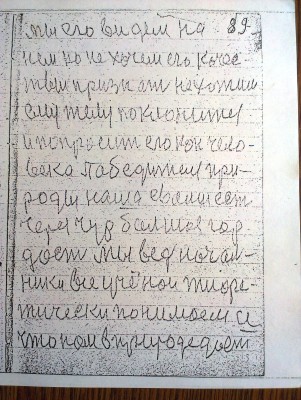 мы его видем на 89
нем но не хочем его качес
твам признат не хотим
ему телу поклонитсу
и попросит его как чело-
века победителу при-
роды наша евоиш ест
через чур балшая гор
дост мы вед началь
ники все учёнои тиоре
тически понимаем и
что нам в природе даёт